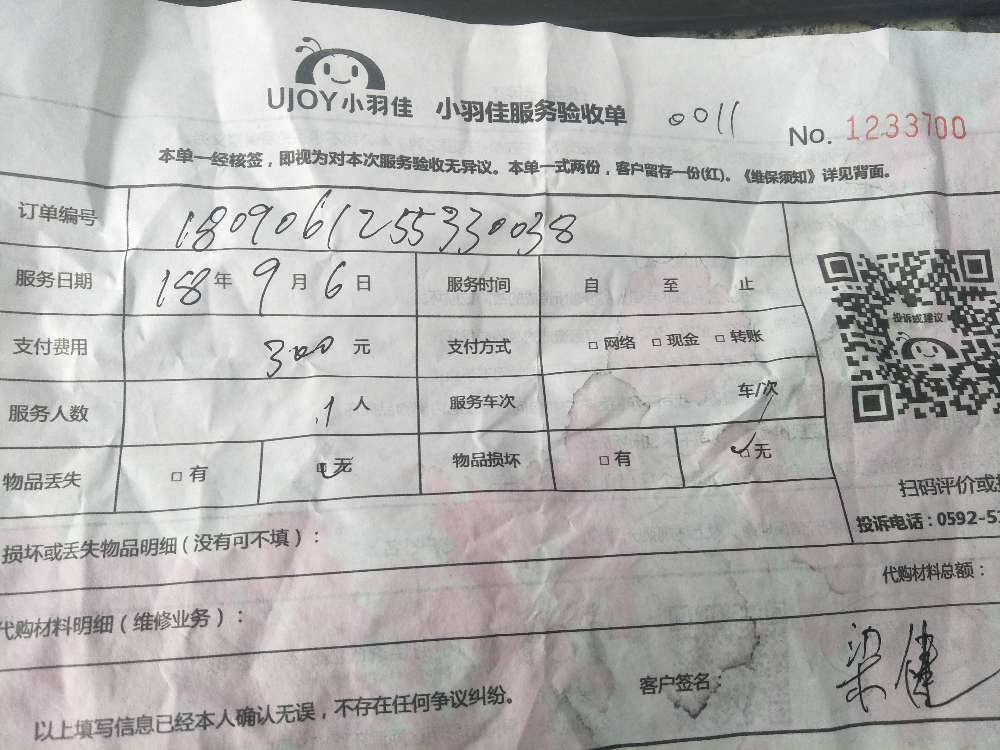 UJOY小羽佳 小羽佳服务验收单 0011 No. 1233700
本单一经核签，即视为对本次服务验收无异议。本单一式两份，客户留存一份(红)。《维保须知》详见背面。
订单编号 1809061255330038
服务日期 18 年 9 月 6 日 服务时间 自 至 止
支付费用 300 元 支付方式 □ 网络 □ 现金 □ 转账
服务人数 1 人 服务车次 车/次
物品丢失 □ 有 ☑ 无 物品损坏 □ 有 ☑ 无
投诉或建议
扫码评价或
投诉电话：0592-5
损坏或丢失物品明细（没有可不填）：
代购材料总额：
代购材料明细（维修业务）：
客户签名： 梁健
以上填写信息已经本人确认无误，不存在任何争议纠纷。